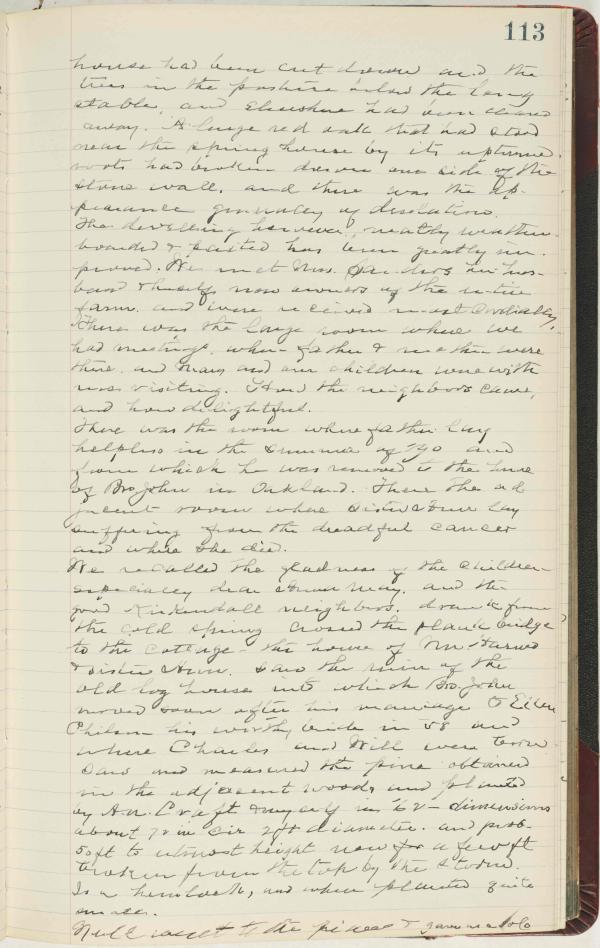 113
house had been cut down and the
trees in the pasture below the long
stable, and elsewhere had been cleared
away. A large red oak that had stood
near the spring house by its upturned
roots had broken down one side of the
stone wall, and there was the ap-
pearance generally of desolation.
The dwelling however, neatly weather-
boarded & painted has been greatly im-
proved. We met Mrs. her hus-
band & herself now owners of the entire
farm, and were received most cordially.
There was the large room where we
had meetings, when father & mother were
there, and Mary and our children were with
us visiting. How the neighbors came,
and how delightful.
There was the room where father lay
helpless in the summer of '70 and
from which he was removed to the home
of Bro. John in Oakland. There the ad-
jacent room where Sister lay
suffering from the dreadful cancer
and where she died.
We recalled the gladness of the children
especially dear May, and the
good Kirkendall neighbors, drank from
the cold spring crossed the plank bridge
to the cottage - the house of Mr.
& Sister Ann. Saw the ruin of the
old log house into which Bro. John
moved soon after his marriage to Ellen
Chilson his worthy bride in '58 and
where Charles and Will were born
Saw and measured the pine obtained
in the adjacent woods and planted
by Craft & myself in '62 - dimensions
about 72 in cir 2ft diameter. and prob-
50 ft to utmost height now for a few ft
broken from the top by the storm.
Is a hemlock, and when planted quite
small.
Nell went to the piano & gave us a solo